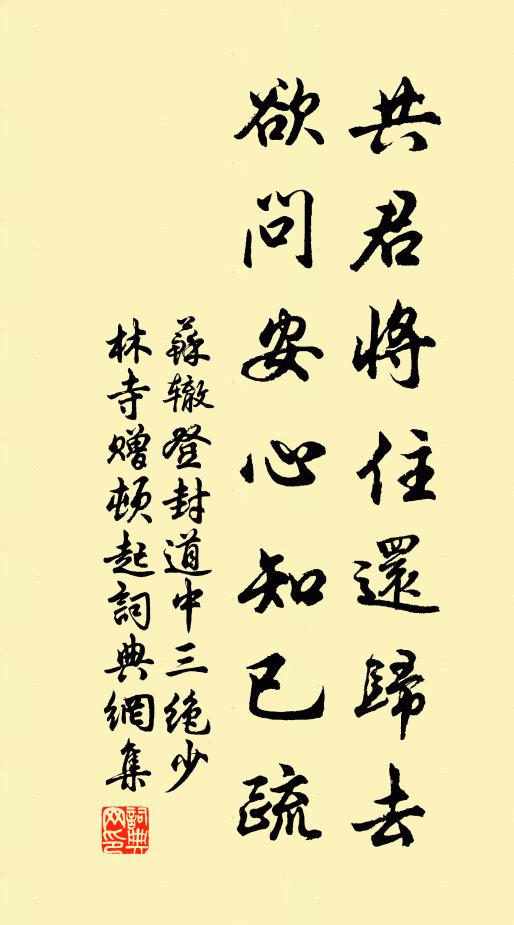 共君將住還歸去
欲問安心知已疏
蘇辙登封道中三绝少
林寺赠頓起詞典網集
詞典
网印